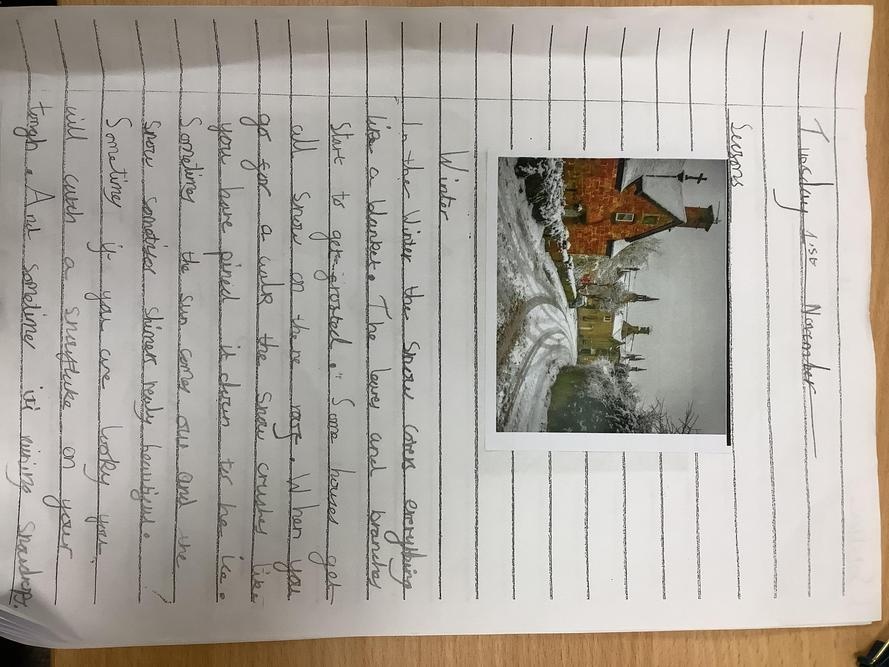 Tuesday 1st November
Seasons
Winter
In the Winter the snow covers everything
like a blanket. The leaves and branches
start to get frosted." Some houses get
all snow on there roof. When you
go for a walk the snow crushes like
you have pined it down to be ice.
Sometimes the sun comes out and the
snow sometimes shines really beautiful.
Sometimes if you are lucky you
will catch a snowflake on your
tongh. And sometimes it's raining snowdrops.